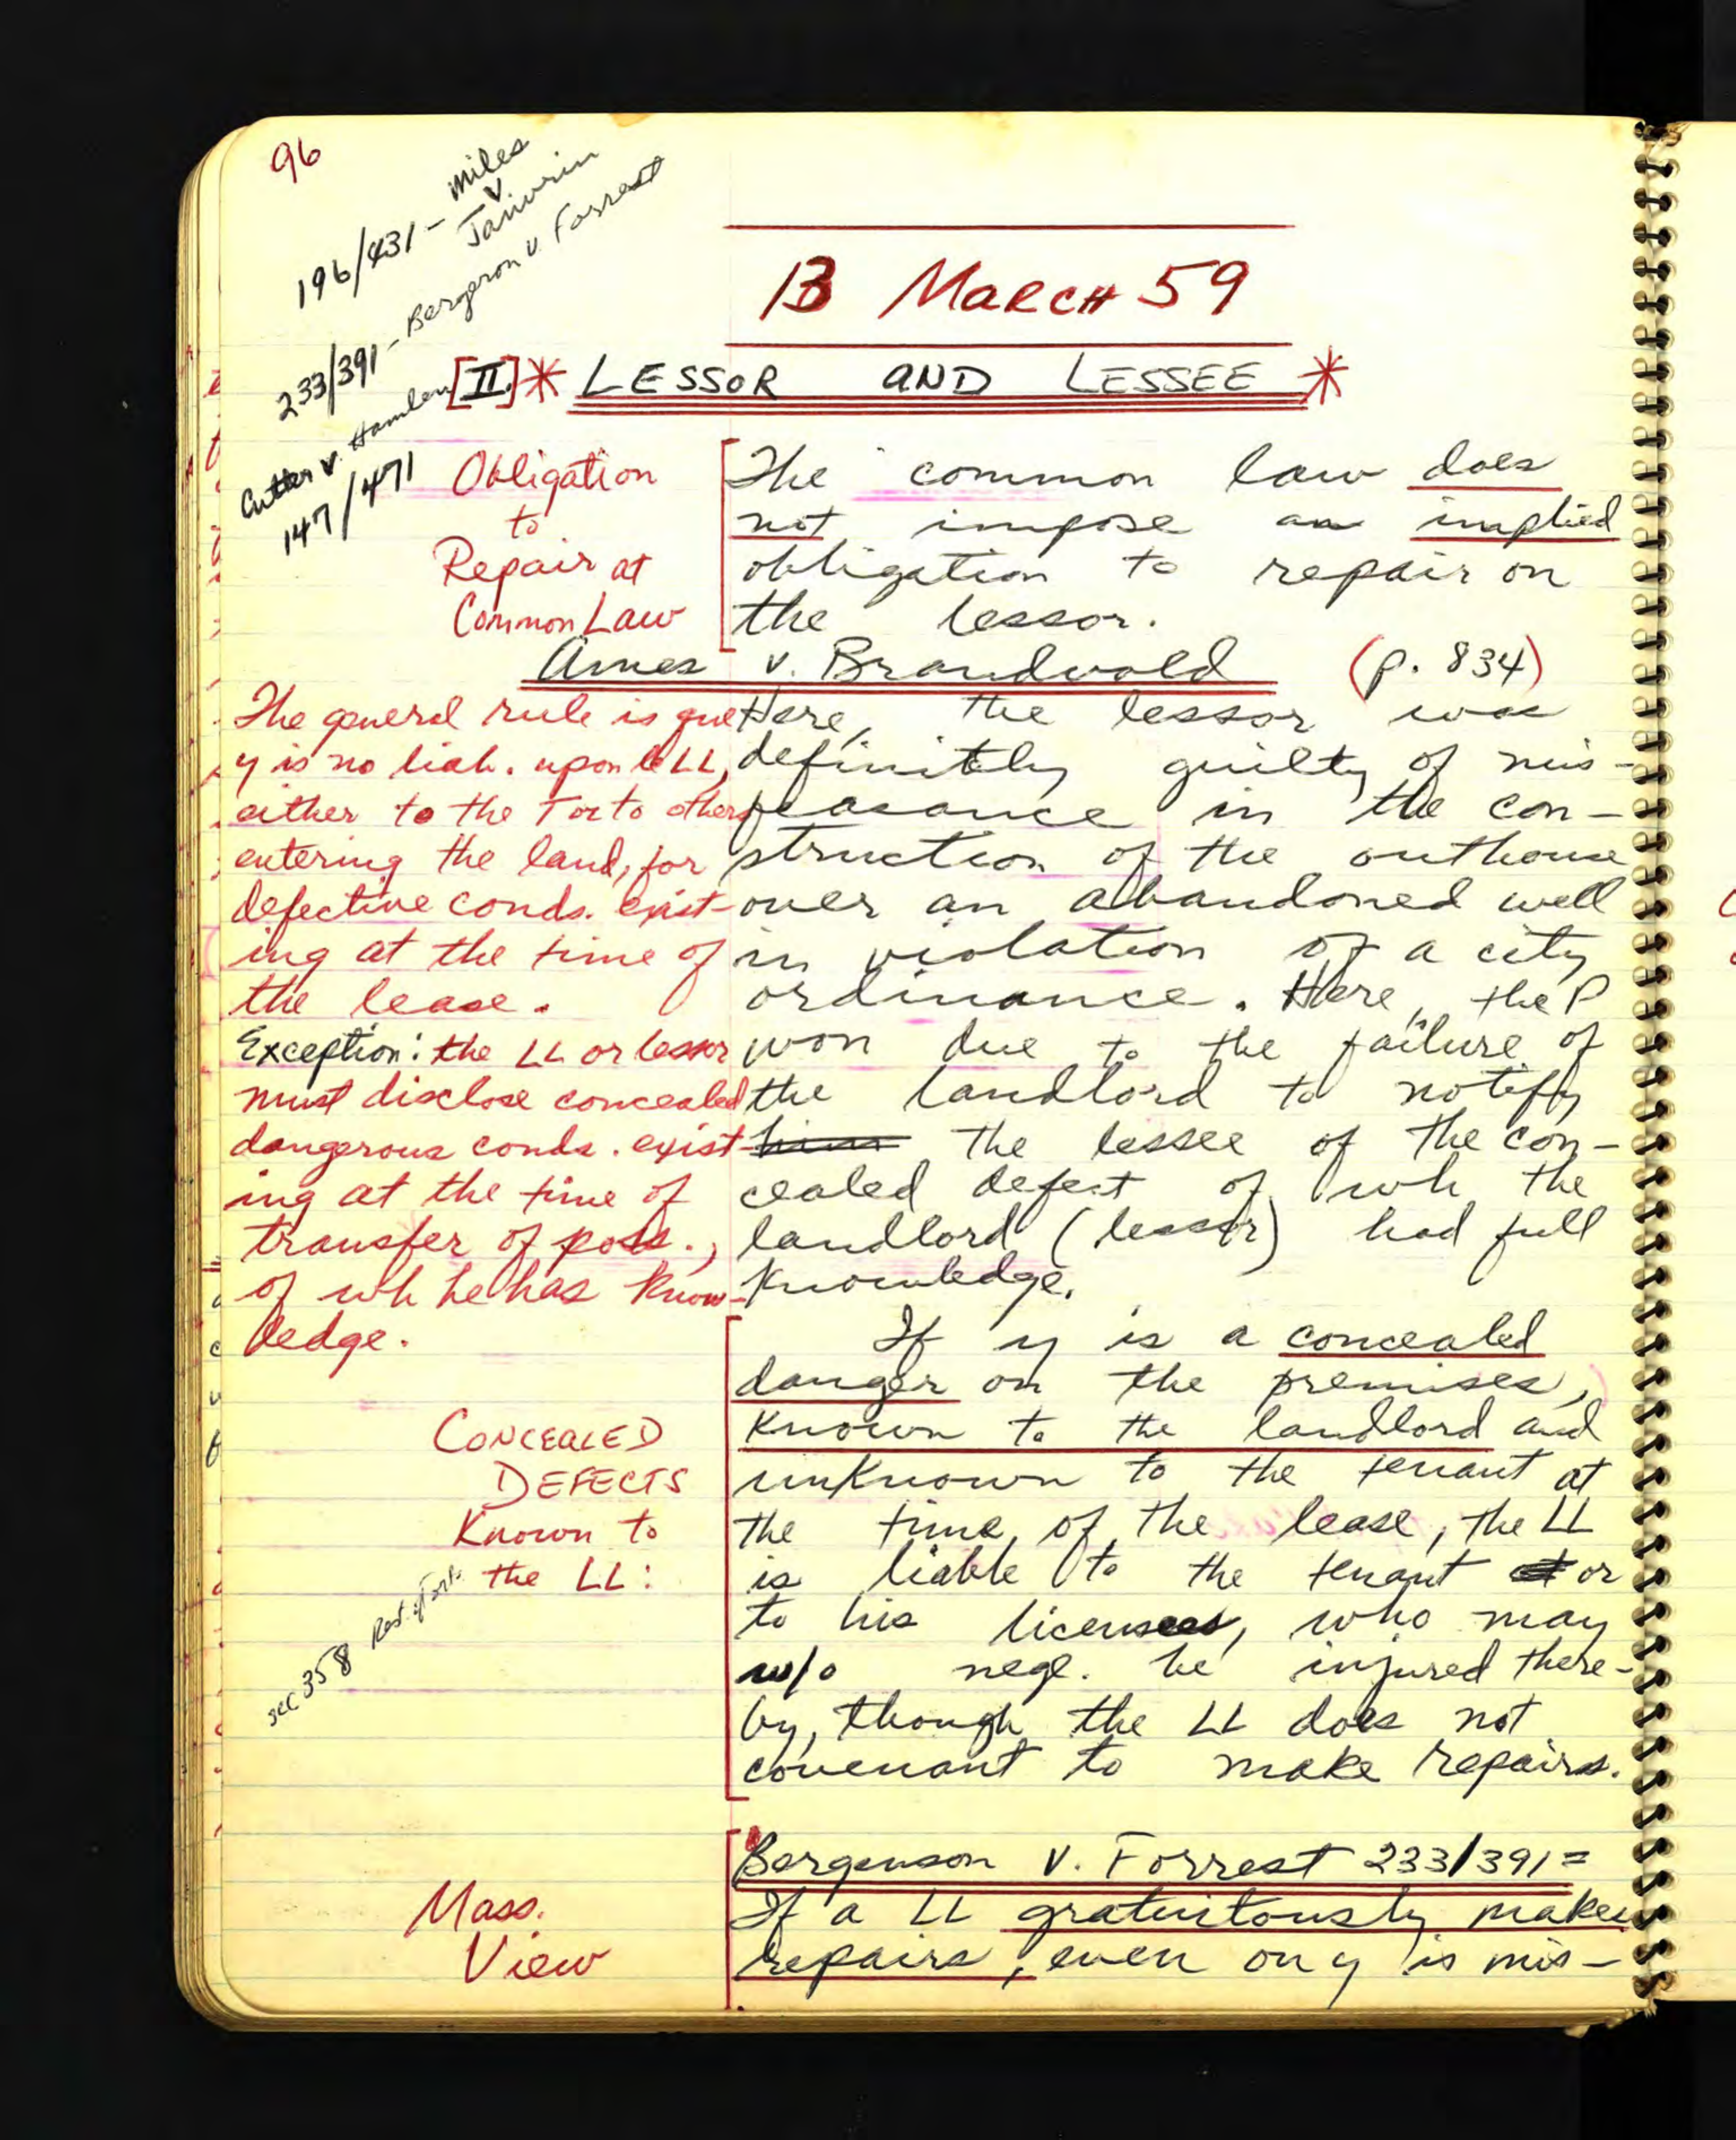 96
196/431 - Miles
v
Janvrin
233/391 - Bergeron v. Forrest
Cutter v. Hamlen
147/471
13 March 59
[II.] * LESSOR AND LESSEE *
Obligation
to
Repair at
Common Law
The common law does
not impose an implied
obligation to repair on
the lessor.
Ames v. Brandvold (p. 834)
The general rule is
y is no liab. upon LL,
either to the T or to others
entering the land, for
defective conds. exist-
ing at the time of
the lease.
Exception: the LL or lessor
must disclose concealed
dangerous conds. exist-
ing at the time of
transfer of poss.,
of wh he has know-
ledge.
Here, the lessor was
definitly guilty of mis-
feasance in the con-
struction of the outhouse
over an abandoned well
in violation of a city
ordinance. Here, the P
won due to the failure of
the landlord to notify
him the lessee of the con-
cealed defect of wh the
landlord (lessor) had full
knowledge.
CONCEALED
DEFECTS
Known to
the LL:
sec 358 Rest. of Torts
If y is a concealed
danger on the premises,
known to the landlord and
unknown to the tenant at
the time of the lease, the LL
is liable to the tenant or
to his licensees, who may
w/o negl. be injured there-
by, though the LL does not
covenant to make repairs.
Mass.
View
Bergenson v. Forrest 233/391 =
If a LL gratuitously makes
repairs, even on y is mis-